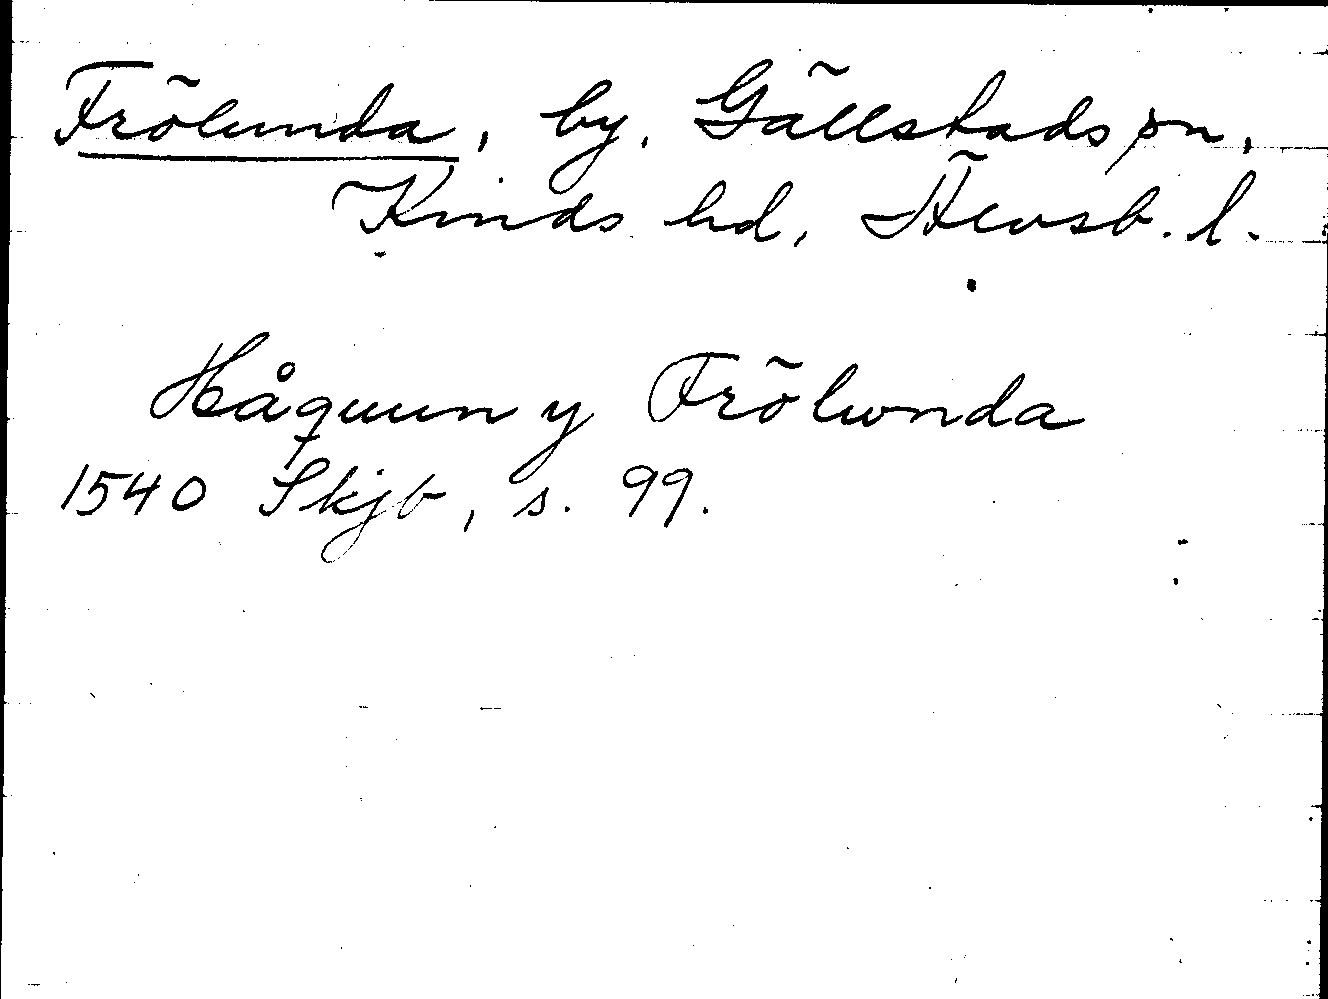 Frölunda, by, Gällstads sn,
Kinds hd, Älvsb. l.
Håquun y Frölunda
1540 Skjb, s. 99.